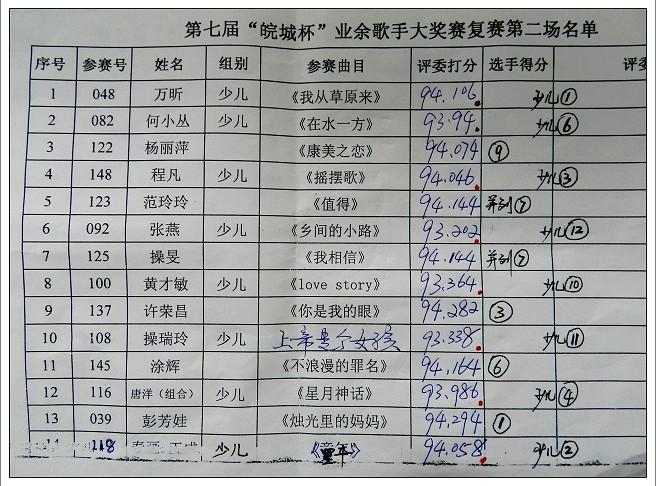 第七届“皖城杯”业余歌手大奖赛复赛第二场名单
序号 参赛号 姓名 组别 参赛曲目 评委打分 选手得分 评委
1 048 万昕 少儿 《我从草原来》 94.106 少儿①
2 082 何小丛 少儿 《在水一方》 93.94 少儿⑥
3 122 杨丽萍 《康美之恋》 94.074 ⑨
4 148 程凡 少儿 《摇摆歌》 94.046 少儿③
5 123 范玲玲 《值得》 94.144 并列⑦
6 092 张燕 少儿 《乡间的小路》 93.202 少儿⑫
7 125 操旻 《我相信》 94.144 并列⑦
8 100 黄才敏 少儿 《love story》 93.364 少儿⑩
9 137 许荣昌 《你是我的眼》 94.282 ③
10 108 操瑞玲 少儿 上帝是个女孩 93.338 少儿⑪
11 145 涂辉 《不浪漫的罪名》 94.164 ⑥
12 116 唐洋（组合） 少儿 《星月神话》 93.986 少儿④
13 039 彭芳娃 《烛光里的妈妈》 94.294 ①
14 118 少儿 《童年》 94.058 少儿②